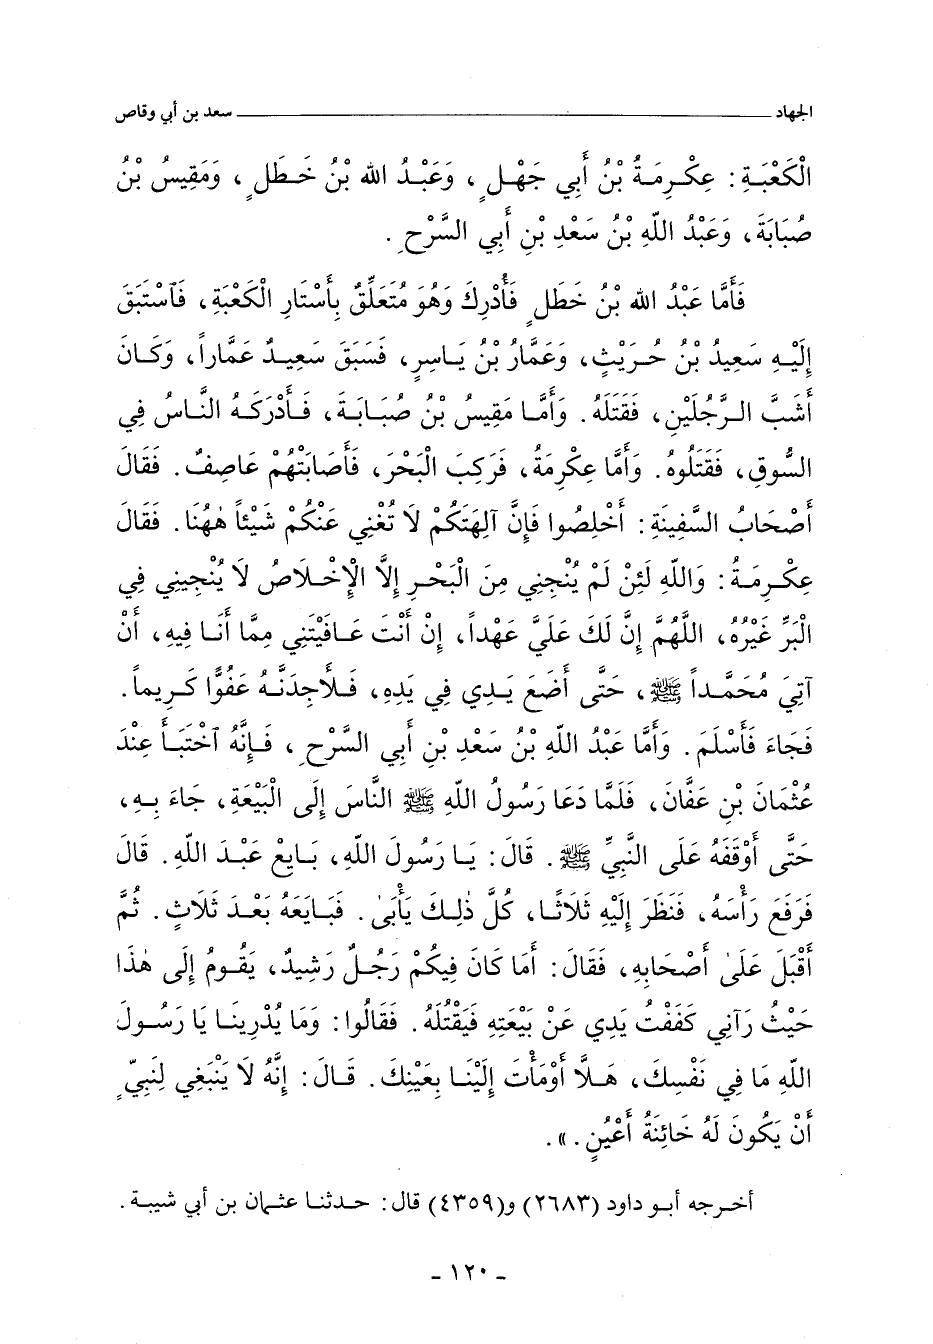 الجهاد ــــــــــــــــــــ سعد بن أبي وقاص
الْكَعْبَةِ : عِكْرِمَةُ بْنُ أَبِي جَهْلٍ ، وَعَبْدُ الله بْنُ خَطَلٍ ، وَمَقِيسُ بْنُ
صُبَابَةَ، وَعَبْدُ اللّهِ بْنُ سَعْدِ بْنِ أَبِي السَّرْحِ .
فَأَمَّا عَبْدُ الله بْنُ خَطَلٍ فَأُدْرِكَ وَهُوَ مُتَعَلِّقٌ بِأَسْتَارِ الْكَعْبَةِ، فَٱسْتَبَقَ
إِلَيْهِ سَعِيدُ بْنُ حُرَيْثٍ، وَعَمَّارُ بْنُ يَاسِرٍ، فَسَبَقَ سَعِيدٌ عَمَّاراً، وَكَانَ
أَشَبَّ الرَّجُلَيْنِ، فَقَتَلَهُ. وَأَمَّا مَقِيسُ بْنُ صُبَابَةَ، فَأَدْرَكَهُ النَّاسُ فِي
السُّوقِ، فَقَتَلُوهُ. وَأَمَّا عِكْرِمَةُ، فَرَكِبَ الْبَحْرَ، فَأَصَابَتْهُمْ عَاصِفٌ. فَقَالَ
أَصْحَابُ السَّفِينَةِ: أَخْلِصُوا فَإِنَّ آلِهَتَكُمْ لَا تُغْنِي عَنْكُمْ شَيْئاً هٰهُنَا. فَقَالَ
عِكْرِمَةُ: وَاللّهِ لَئِنْ لَمْ يُنْجِنِي مِنَ الْبَحْرِ إِلَّا الْإِخْلَاصُ لَا يُنْجِينِي فِي
الْبَرِّ غَيْرُهُ، اللَّهُمَّ إِنَّ لَكَ عَلَيَّ عَهْداً، إِنْ أَنْتَ عَافَيْتَنِي مِمَّا أَنَا فِيهِ، أَنْ
آتِيَ مُحَمَّداً ﷺ، حَتَّى أَضَعَ يَدِي فِي يَدِهِ، فَلَأَجِدَنَّهُ عَفُوًّا كَرِيماً.
فَجَاءَ فَأَسْلَمَ. وَأَمَّا عَبْدُ اللّهِ بْنُ سَعْدِ بْنِ أَبِي السَّرْحِ، فَإِنَّهُ ٱخْتَبَأَ عِنْدَ
عُثْمَانَ بْنِ عَفَّانَ، فَلَمَّا دَعَا رَسُولُ اللّهِ ﷺ النَّاسَ إِلَى الْبَيْعَةِ، جَاءَ بِهِ،
حَتَّى أَوْقَفَهُ عَلَى النَّبِيِّ ﷺ. قَالَ: يَا رَسُولَ اللّهِ، بَايِعْ عَبْدَ اللّهِ. قَالَ
فَرَفَعَ رَأْسَهُ، فَنَظَرَ إِلَيْهِ ثَلَاثًا، كُلَّ ذٰلِكَ يَأْبَىٰ. فَبَايَعَهُ بَعْدَ ثَلَاثٍ. ثُمَّ
أَقْبَلَ عَلَىٰ أَصْحَابِهِ، فَقَالَ: أَمَا كَانَ فِيكُمْ رَجُلٌ رَشِيدٌ، يَقُومُ إِلَى هٰذَا
حَيْثُ رَآنِي كَفَفْتُ يَدِي عَنْ بَيْعَتِهِ فَيَقْتُلَهُ. فَقَالُوا: وَمَا يُدْرِينَا يَا رَسُولَ
اللّهِ مَا فِي نَفْسِكَ، هَلَّا أَوْمَأْتَ إِلَيْنَا بِعَيْنِكَ. قَالَ: إِنَّهُ لَا يَنْبَغِي لِنَبِيٍّ
أَنْ يَكُونَ لَهُ خَائِنَةُ أَعْيُنٍ.».
أخرجه أبو داود (٢٦٨٣) و(٤٣٥٩) قال: حدثنا عثمان بن أبي شيبة.
- ١٢٠ -